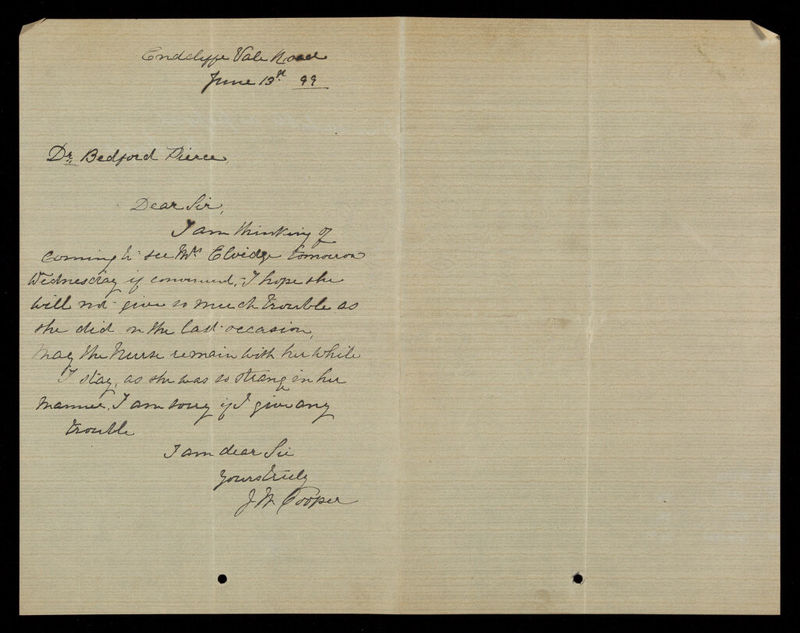 Endclyffe Vale Road
June 13th 99
Dr. Bedford Pierce,
Dear Sir,
I am thinking of
coming to see Mrs Elvidge tomorrow
Wednesday if convenient, I hope she
will not give so much trouble as
she did on the last occasion,
may the Nurse remain with her while
I stay, as she was so strange in her
manner, I am sorry if I give any
trouble
I am dear Sir
Yours truly
J W Cooper